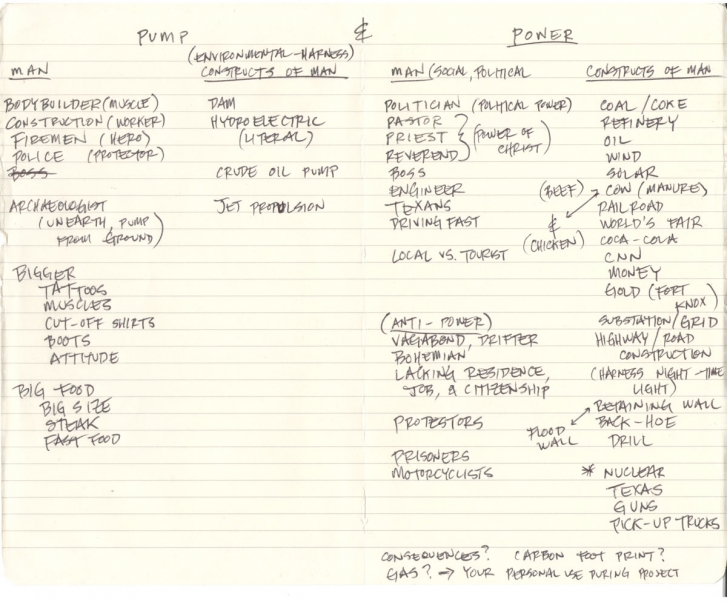 PUMP & POWER
MAN
(ENVIRONMENTAL-HARNESS)
CONSTRUCTS OF MAN
BODYBUILDER (MUSCLE)
CONSTRUCTION (WORKER)
FIREMEN (HERO)
POLICE (PROTECTOR)
BOSS
ARCHAEOLOGIST
(UNEARTH, PUMP
FROM GROUND)
BIGGER
TATTOOS
MUSCLES
CUT-OFF SHIRTS
BOOTS
ATTITUDE
BIG FOOD
BIG SIZE
STEAK
FAST FOOD
DAM
HYDROELECTRIC
(LITERAL)
CRUDE OIL PUMP
JET PROPULSION
MAN (SOCIAL, POLITICAL
POLITICIAN (POLITICAL POWER)
PASTOR
PRIEST
REVEREND
(POWER OF
CHRIST)
BOSS
ENGINEER
TEXANS
DRIVING FAST
LOCAL VS. TOURIST
(ANTI-POWER)
VAGABOND, DRIFTER
BOHEMIAN
LACKING RESIDENCE,
JOB, & CITIZENSHIP
PROTESTORS
PRISONERS
MOTORCYCLISTS
CONSTRUCTS OF MAN
COAL/COKE
REFINERY
OIL
WIND
SOLAR
(BEEF) → COW (MANURE)
&
(CHICKEN)
RAILROAD
WORLD'S FAIR
COCA-COLA
CNN
MONEY
GOLD (FORT
KNOX)
SUBSTATION/GRID
HIGHWAY/ROAD
CONSTRUCTION
(HARNESS NIGHT-TIME
LIGHT)
RETAINING WALL
FLOOD
WALL
BACK-HOE
DRILL
* NUCLEAR
TEXAS
GUNS
PICK-UP TRUCKS
CONSEQUENCES? CARBON FOOT PRINT?
GAS? → YOUR PERSONAL USE DURING PROJECT